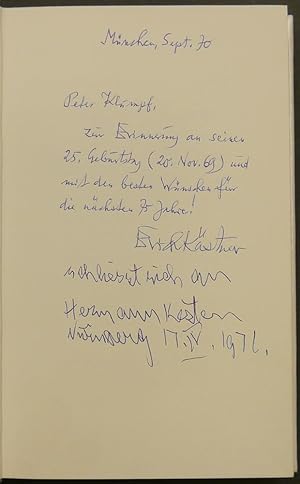 München, Sept. 70
Peter Klumpf,
zur Erinnerung an seinen
25. Geburtstag (20. Nov. 69) und
mit den besten Wünschen für
die nächsten 75 Jahre!
Erich Kästner
schliesst sich an
Hermann Kesten
Nürnberg 17. IV. 1971.